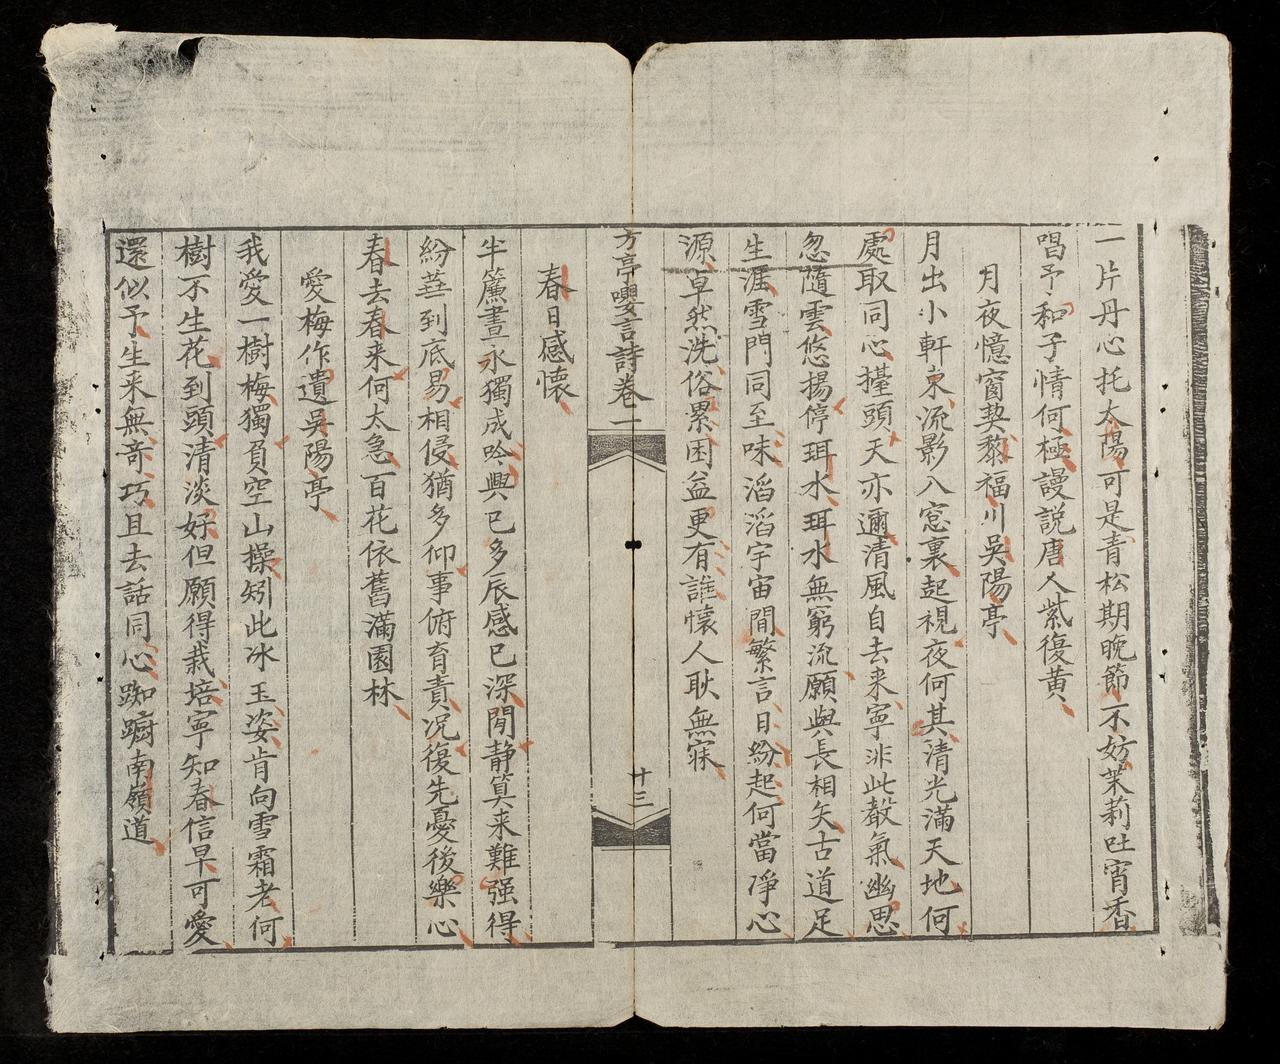 一片丹心托太陽可是青松期晚節不妨茉莉吐宵香
唱予和子情何極謾説唐人紫復黃
月夜憶窗契黎福川吳陽亭
月出小軒東流影入窓裏起視夜何其清光滿天地何
處取同心擡頭天亦邇清風自去来寧非此聲氣幽思
忽隨雲悠揚停珥水珥水無窮流願與長相矢古道足
生涯雪門同至味滔滔宇宙間繁言日紛起何當凈心
源卓然洗俗累困益更有誰懷人耿無寐
方亭嚶言詩卷二
十三
春日感懷
半簾晝永獨成吟興已多辰感已深閒静筭来難强得
紛華到底易相侵猶多仰事俯育責况復先憂後樂心
春去春来何太急百花依舊滿園林
愛梅作遺吳陽亭
我愛一樹梅獨負空山操矧此冰玉姿肯向雪霜老何
樹不生花到頭清淡好但願得栽培寧知春信早可愛
還似予生来無竒巧且去話同心踟躕南嶺道